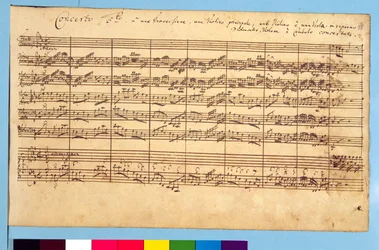 Concerto 5to. à une Traversiere, une Violino principale, une Violino è una Viola in ripieno
Violoncello, Violone è Cembalo concertato